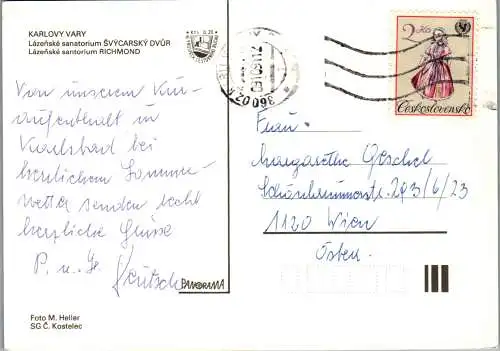 KARLOVY VARY
Lázeňské sanatorium ŠVÝCARSKÝ DVŮR
Lázeňské santorium RICHMOND
Von unserem Kur-
aufenthalt in
Karlsbad bei
herrlichem Sommer-
wetter senden recht
herzliche Grüsse
P. u. Ge. Heutschi
PANORAMA
Foto M. Heller
SG Č. Kostelec
360 02
2 Kčs
Československo
Frau
Margarethe Geschel
Schönbrunnerstr. 293/6/23
1120 Wien
Österr.